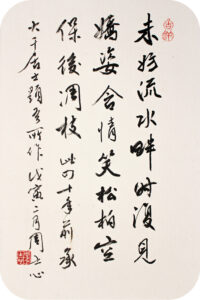 未妨流水畔時復見
嬌姿含情笑松柏空
保後凋枝 此四十年前承
大千居士題吾所作戊寅二月周士心